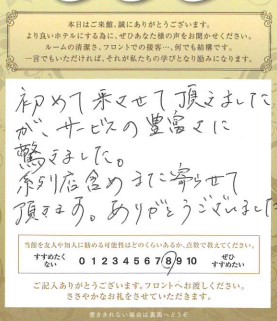 本日はご来館、誠にありがとうございます。
より良いホテルにする為に、ぜひあなた様の声をお聞かせください。
ルームの清潔さ、フロントでの接客…、何でも結構です。
一言でもいただければ、それが私たちの学びとなり励みになります。
初めて来させて頂きました
が、サービスの豊富さに
驚きました。
系列店含めまた寄らせて
頂きます。ありがとうございました
当館を友人や知人に勧める可能性はどのくらいあるか、点数で教えてください。
すすめたくない 0 1 2 3 4 5 6 7 8 9 10 ぜひすすめたい
ご記入ありがとうございます。フロントへお渡しください。
ささやかなお礼をさせていただきます。
書ききれない場合は裏面へどうぞ